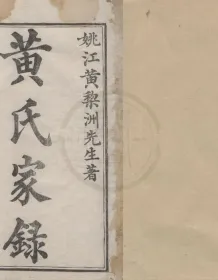 姚江黃黎洲先生著
黃氏家錄